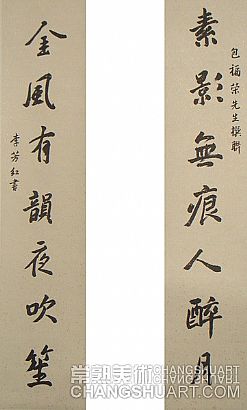 素影無痕人醉月
包福荣先生撰聯
金風有韻夜吹笙
李芳紅書
常熟美術
CHANGSHUART
CHANGSHUART.COM